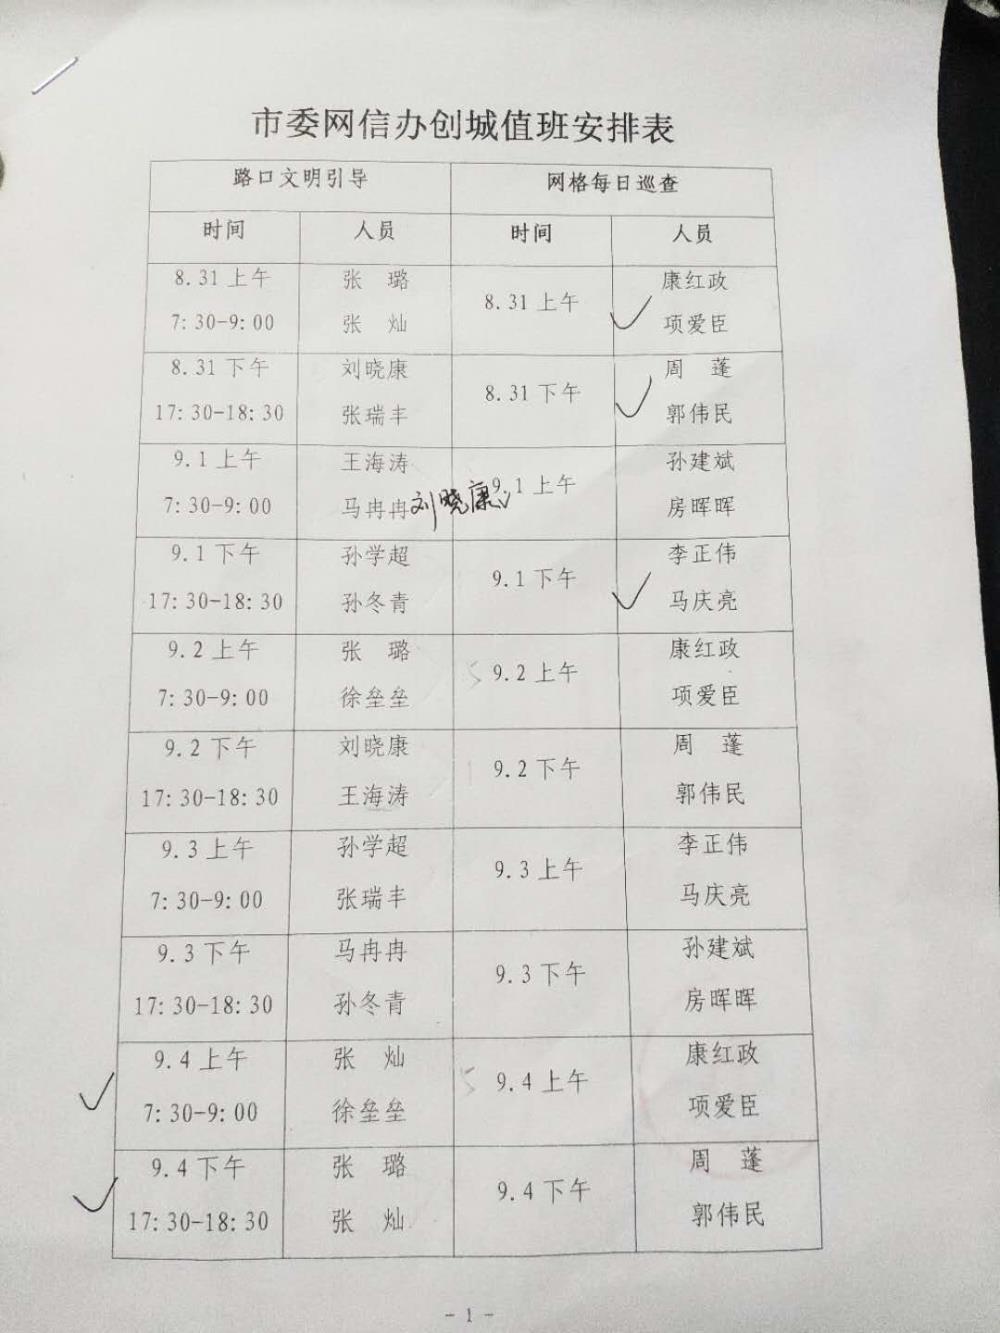 市委网信办创城值班安排表
路口文明引导 网格每日巡查
时间 人员 时间 人员
8.31上午 张 璐 8.31上午 康红政
7:30-9:00 张 灿 项爱臣
8.31下午 刘晓康 8.31下午 周 蓬
17:30-18:30 张瑞丰 郭伟民
9.1上午 王海涛 9.1上午 孙建斌
7:30-9:00 马冉冉 刘晓康 房晖晖
9.1下午 孙学超 9.1下午 李正伟
17:30-18:30 孙冬青 马庆亮
9.2上午 张 璐 9.2上午 康红政
7:30-9:00 徐垒垒 项爱臣
9.2下午 刘晓康 9.2下午 周 蓬
17:30-18:30 王海涛 郭伟民
9.3上午 孙学超 9.3上午 李正伟
7:30-9:00 张瑞丰 马庆亮
9.3下午 马冉冉 9.3下午 孙建斌
17:30-18:30 孙冬青 房晖晖
9.4上午 张 灿 9.4上午 康红政
7:30-9:00 徐垒垒 项爱臣
9.4下午 张 璐 9.4下午 周 蓬
17:30-18:30 张 灿 郭伟民
- 1 -